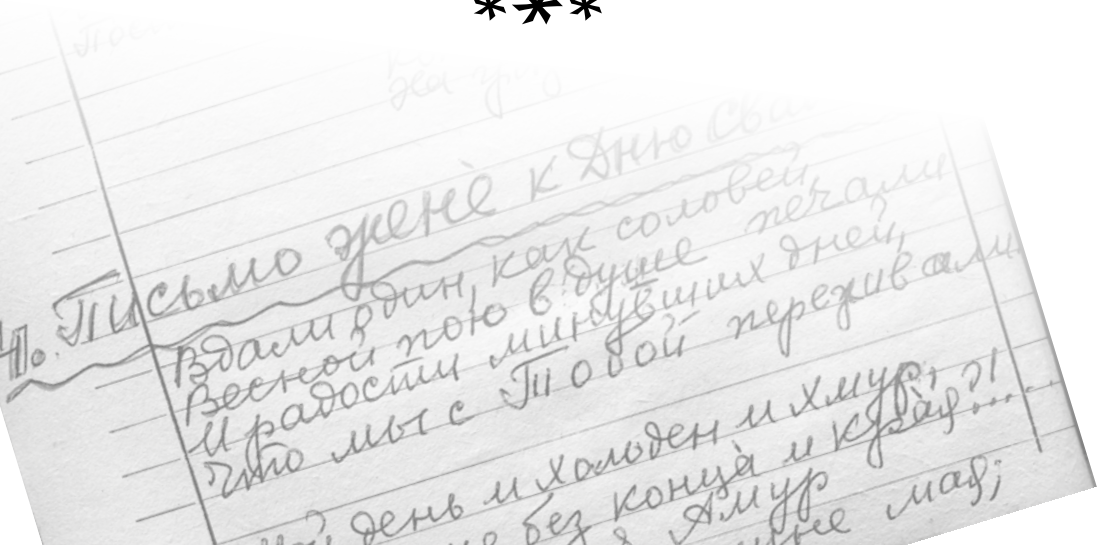 ***
4. Письмо жене к Дню Сва
Вдали один, как соловей,
Весной пою в душе печали
И радости минувших дней,
Что мы с Тобой переживали
день и холоден и хмур,
без конца и края...
Амур
мая;